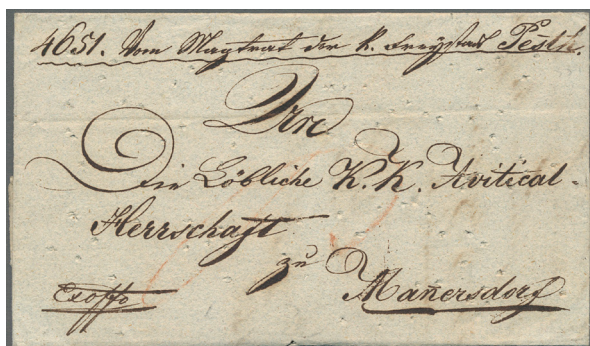 4651. Vom Magtrat der k. Freystadt Pesth.
An
Die Löbliche K. K. Avitical-
Herrschaft
zu
Man̄ersdorf
Exoffo